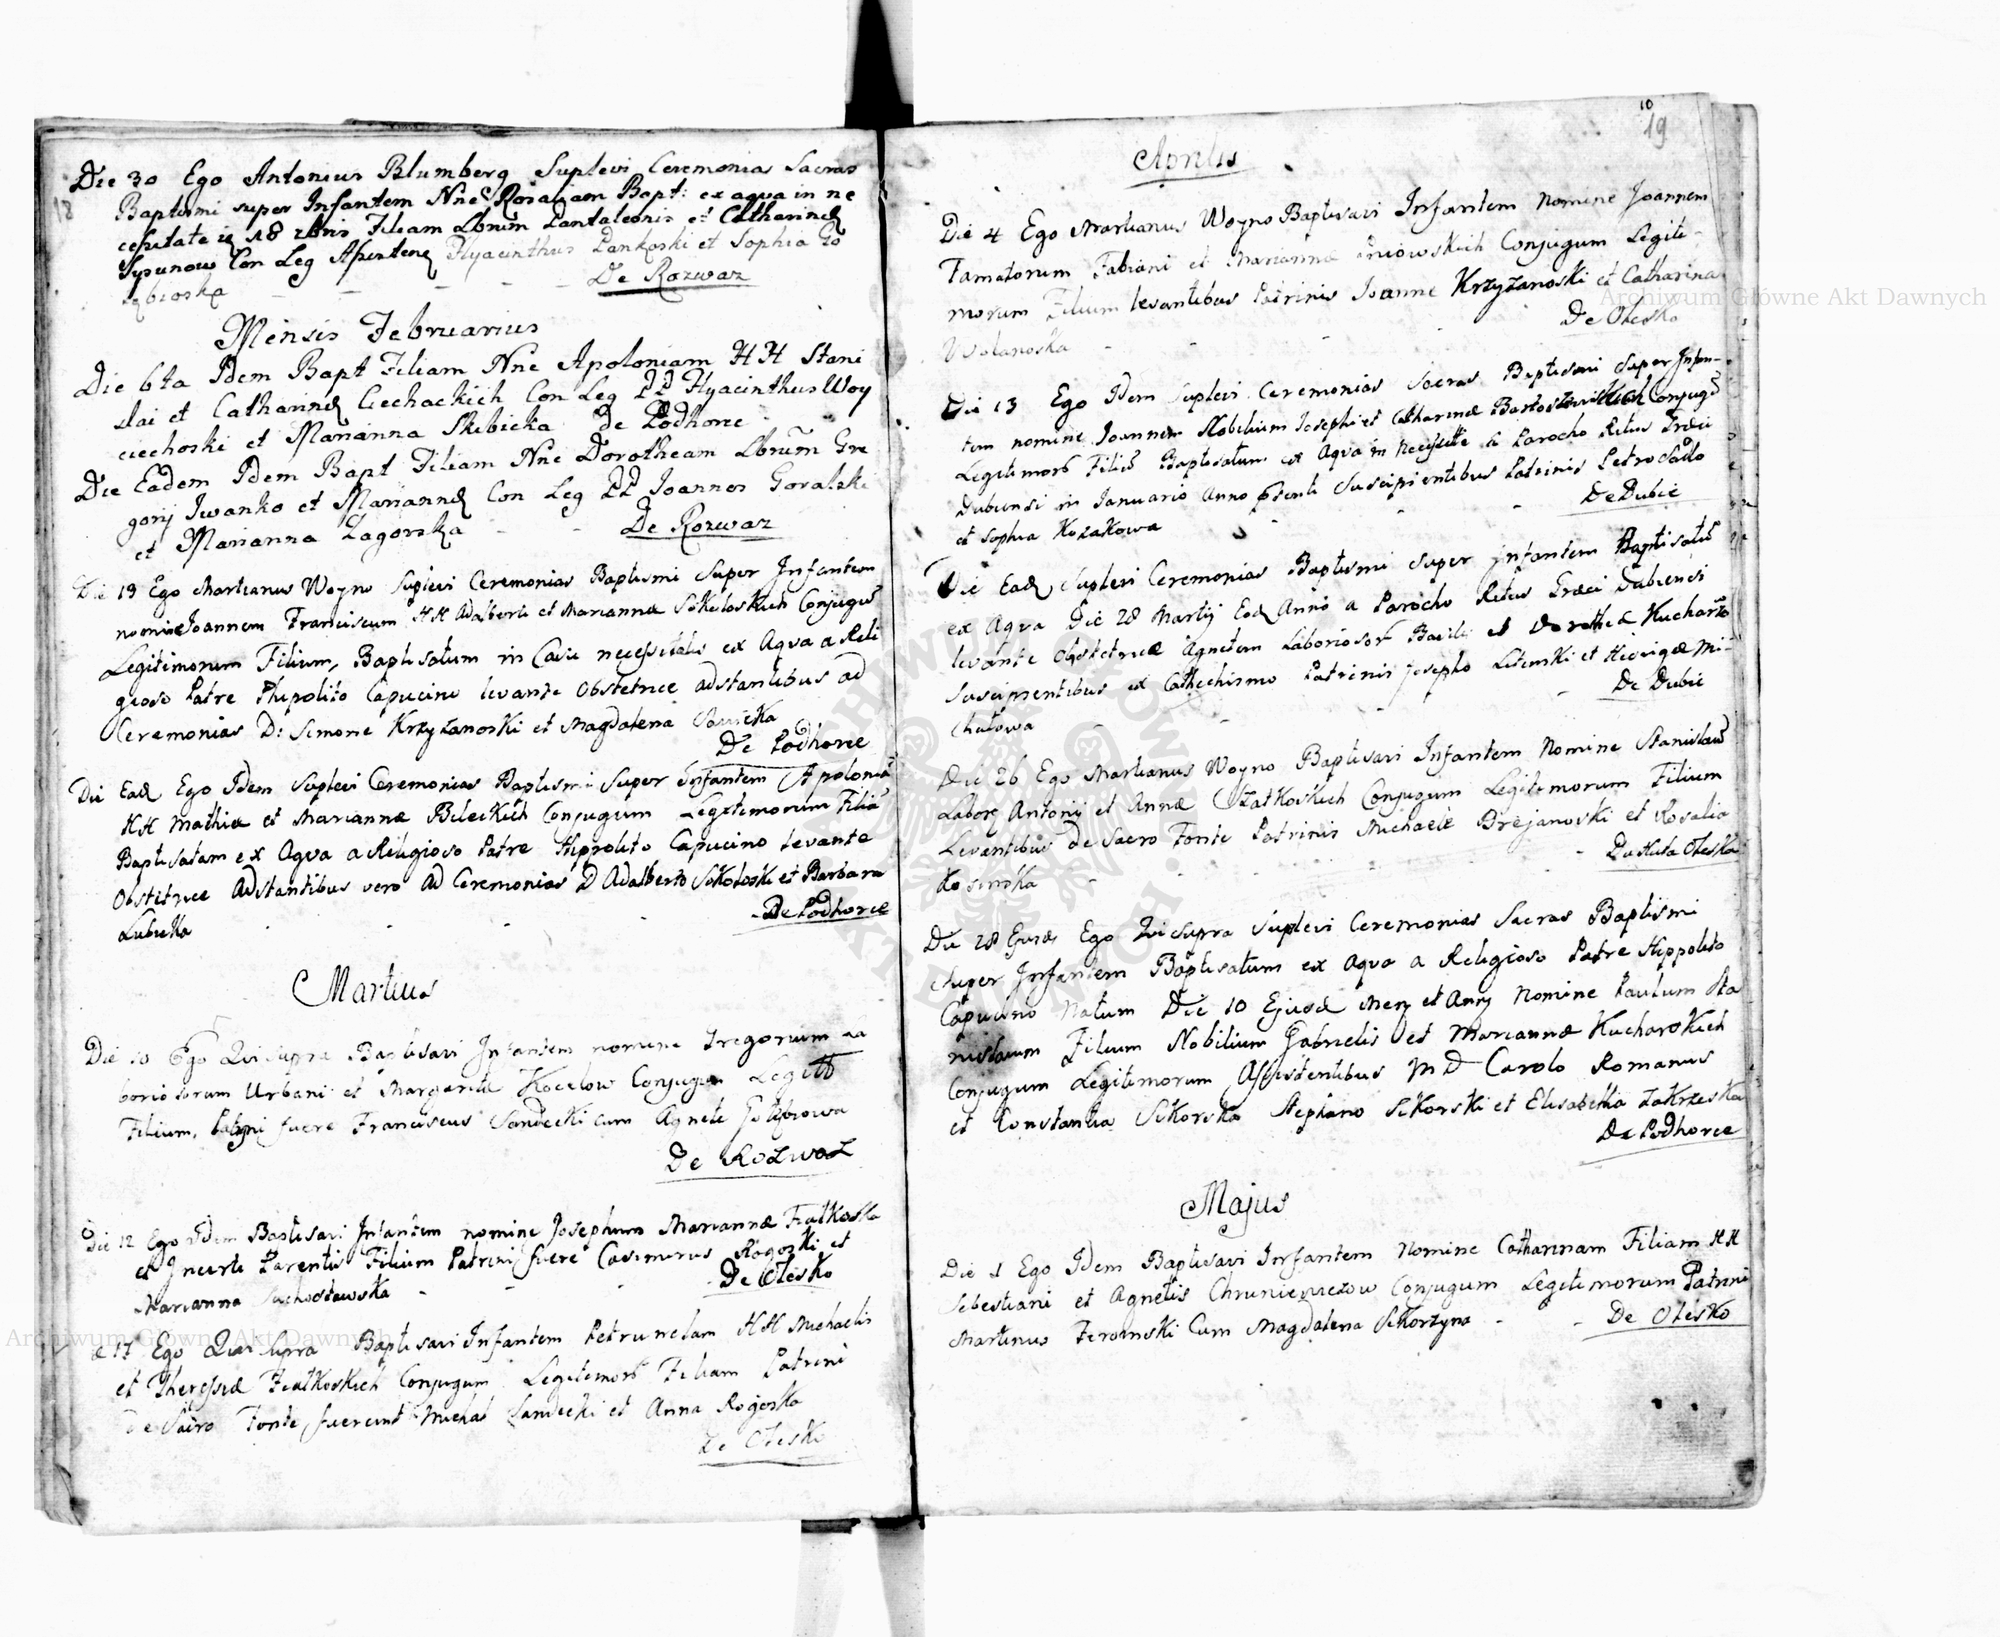 18
Die 30 Ego Antonius Blumberg Suplevi Ceremonias Sacras
Baptismi super Infantem Nne Rosaliam Bapt: ex aqua in ne
cessitate 18 Filiam Lbrum Pantaleonis et Catharinæ
Con Leg Hyacinthus Pankoski et Sophia Go
łębioska
De Rozwaz
Mensis Februarius
Die 6ta Idem Bapt Filiam Nne Apoloniam HH Stani
slai et Catharinæ Ciechackich Con Leg PP Hyacinthus Woy
ciechoski et Marianna Skibicka de Podhorce
Die Eadem Idem Bapt Filiam Nne Dorotheam Lbrum Gre
gorij Iwanko et Mariannæ Con Leg PP Joannes Goralski
et Marianna Zagorska
De Rozwaz
Die 19 Ego Martianus Woyno Suplevi Ceremonias Baptismi Super Infantem
nomine Joannem Franciscum HH Adalberti et Mariannæ Sokołoskich Conjugum
Legitimorum Filium, Baptisatum in Casu necessitatis ex Aqva a Reli
gioso Patre Hipolito Capucino levante Obstetrice adstantibus ad
Ceremonias D: Simone Krzyżanoski et Magdalena
De Podhorce
Die Ead Ego Idem Suplevi Ceremonias Baptismi Super Infantem Apolonia
HH Mathiæ et Mariannæ Bileckich Conjugum Legitimorum Filia
Baptisatam ex Aqva a Religioso Patre Hippolito Capucino levante
Obstitrice Adstantibus vero ad Ceremonias D Adalberto Sokołoski et Barbara
Lubicka
De Podhorce
Martius
Die 10 Ego Qui Supra Baptisavi Infantem nomine Gregorium La
boriosorum Urbani et Margaritæ Kocelow Conjugum
Filium, Patrini fuere Franciscus Sandecki cum Agnete Gołębiowa
De Rozwaz
Die 12 Ego Idem Baptisavi Infantem nomine Josephum Mariannæ Fiałkoska
et Incerti Parentis Filium Patrini fuere Casimirus Rogoski et
Marianna Suchodowska
De Olesko
17 Ego Qui Supra Baptisavi Infantem Petrunelam HH Michaelis
et Theressiæ Fiałkoskich Conjugum Legitimor Filiam Patrini
De Sacro Fonte fuerunt Michał Sandecki et Anna Rogoska
De Olesko
10
19
Aprilis
Die 4 Ego Martianus Woyno Baptisavi Infantem Nomine Joannem
Famatorum Fabiani et Mariannæ Conjugum Legiti-
morum Filium levantibus Patrinis Joanne Krzyżanoski et Catharina
Wolanoska
De Olesko
Die 13 Ego Idem Suplevi Ceremonias Sacras Baptismi Super Infan-
tem nomine Joannem Nobilium Josephi et Catharinæ Conjugu
Legitimor Filiu Baptisatum ex Aqva in Necessitate a Parocho Ritus Græci
Dubiensi in Januario Anno Suscipientibus Patrinis Petro Sadło
et Sophia Kozakowa
De Dubie
Die Ead Suplevi Ceremonias Baptismi Super Infantem Baptisatu
ex Aqva Die 28 Martij Eod Anno a Parocho Ritus Græci Dubiensi
levante Obstetrice Agnetem Laboriosor Basili et Dorotheæ
Suscipientibus ex Cathechismo Patrinis Josepho et Hedvige Mi-
chałowa
De Dubie
Die 26 Ego Martianus Woyno Baptisavi Infantem Nomine Stanisław
Labor Antonij et Annæ Conjugum Legitimorum Filium
Levantibus de Sacro Fonte Patrinis Michaele Brejanoski et Rosalia
Kosinska
De Huta Oleska
Die 28 Ejusd Ego Qui Supra Suplevi Ceremonias Sacras Baptismi
Super Infantem Baptisatum ex Aqva a Religioso Patre Hippolito
Capucino Natum Die 10 Ejusd Men et Anny Nomine Paulum Sta
nislaum Filium Nobilium Gabrielis et Mariannæ Kucharskich
Conjugum Legitimorum Assistentibus M D Carolo Romanus
et Constantia Sikorska Stephano Sikorski et Elisabetha Zakrzeska
De Podhorce
Majus
Die 1 Ego Idem Baptisavi Infantem Nomine Catharinam Filiam HH
Sebestiani et Agnetis Conjugum Legitimorum Patrini
Martinus Feromski Cum Magdalena Sikorzyna
De Olesko
Archiwum Główne Akt Dawnych
Archiwum Główne Akt Dawnych
ARCHIWUM GŁÓWNE AKT DAWNYCH